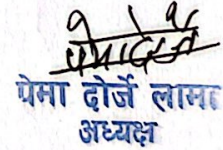 पेमा दोर्जे लामा
अध्यक्ष